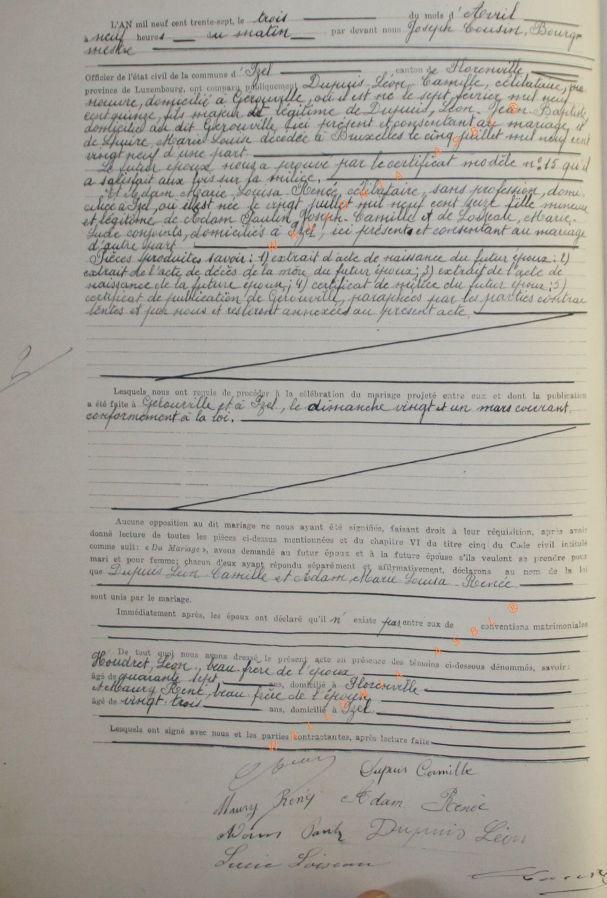 L'AN mil neuf cent trente-sept, le trois du mois d'Avril
à neuf heures du matin par devant nous Joseph Cousin, Bourg-
mestre
Officier de l'état civil de la commune d'Izel canton de Florenville
province de Luxembourg, ont comparu publiquement Dupuis, Léon, Camille, célibataire,
domicilié à Gérouville, où il est né le sept février mil neuf
cent quinze, fils majeur et légitime de Dupuis, Léon, Jean-Baptiste,
domicilié au dit Gérouville, ici présent et consentant au mariage, et
de Marie-Louise décédée à Bruxelles le cinq juillet mil neuf cent
vingt neuf d'une part
Le futur époux nous a prouvé par le certificat modèle n° 15 qu'il
a satisfait aux lois sur la milice.
Et Adam, Marie, Louisa, Renée, célibataire, sans profession, domi-
ciliée à Izel, où elle est née le vingt juillet mil neuf cent seize fille mineure
et légitime de Adam Paulin, Joseph-Camille et de Marie-
conjoints, domiciliés à Izel, ici présents et consentant au mariage
d'autre part
Pièces produites savoir: 1) extrait d'acte de naissance du futur époux: 2)
extrait de l'acte de décès de la mère du futur époux; 3) extrait de l'acte de
naissance de la future épouse; 4) certificat de milice du futur époux; 5)
certificat de publication de Gérouville, paraphées par les parties contrac-
tantes et par nous et resteront annexées au présent acte.
Lesquels nous ont requis de procéder à la célébration du mariage projeté entre eux et dont la publication
a été faite à Gérouville et à Izel, le dimanche vingt et un mars courant,
conformément à la loi.
Aucune opposition au dit mariage ne nous ayant été signifiée, faisant droit à leur réquisition, après avoir
donné lecture de toutes les pièces ci-dessus mentionnées et du chapitre VI du titre cinq du Code civil intitulé
comme suit: « Du Mariage », avons demandé au futur époux et à la future épouse s'ils veulent se prendre pour
mari et pour femme; chacun d'eux ayant répondu séparément et affirmativement, déclarons au nom de la loi
que Dupuis Léon Camille et Adam Marie Louisa Renée
sont unis par le mariage.
Immédiatement après, les époux ont déclaré qu'il n'existe pas entre eux de conventions matrimoniales
De tout quoi nous avons dressé le présent acte en présence des témoins ci-dessous dénommés, savoir:
Houdret, Léon, beau frère de l'époux
âgé de quarante sept ans, domicilié à Florenville
et Maury René, beau frère de l'épouse
âgé de vingt trois ans, domicilié à Izel
Lesquels ont signé avec nous et les parties contractantes, après lecture faite
Dupuis Camille
Maury René Adam Renée
Dupuis Léon
WALLONIA ASBL ®
WALLONIA ASBL ®